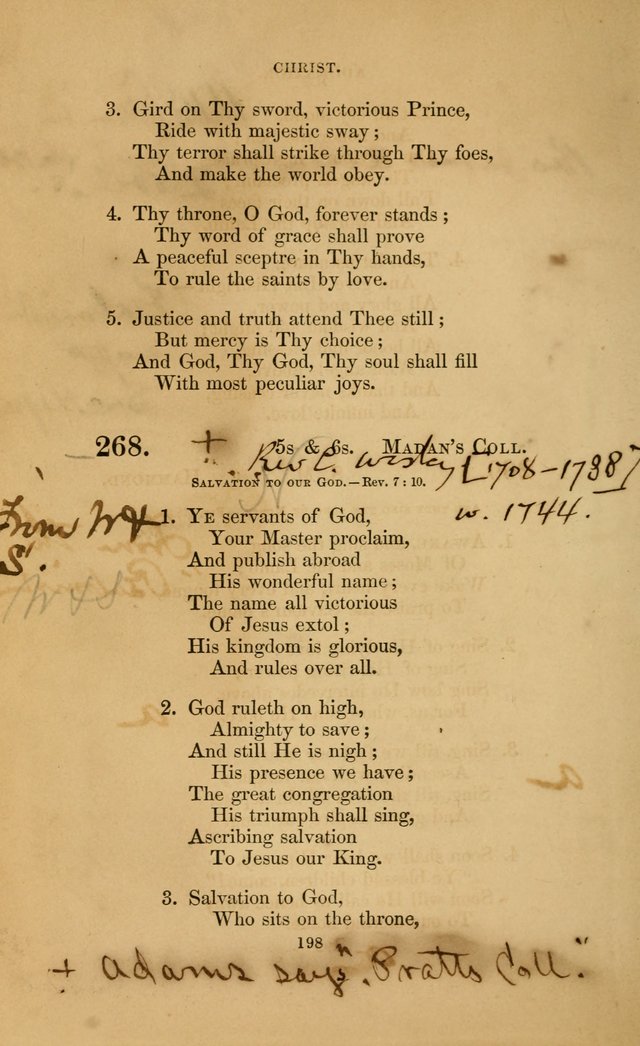 CHRIST.
3. Gird on Thy sword, victorious Prince,
Ride with majestic sway;
Thy terror shall strike through Thy foes,
And make the world obey.
4. Thy throne, O God, forever stands;
Thy word of grace shall prove
A peaceful sceptre in Thy hands,
To rule the saints by love.
5. Justice and truth attend Thee still;
But mercy is Thy choice;
And God, Thy God, Thy soul shall fill
With most peculiar joys.
268. + 5s & 6s. MADAN'S COLL.
Rev C. Wesley [1708-1788]
SALVATION TO OUR GOD.—REV. 7:10.
w. 1744.
From W &
S.
W & S.
1. YE servants of God,
Your Master proclaim,
And publish abroad
His wonderful name;
The name all victorious
Of Jesus extol;
His kingdom is glorious,
And rules over all.
2. God ruleth on high,
Almighty to save;
And still He is nigh;
His presence we have;
The great congregation
His triumph shall sing,
Ascribing salvation
To Jesus our King.
3. Salvation to God,
Who sits on the throne,
198
+ Adams says "Pratts Coll."